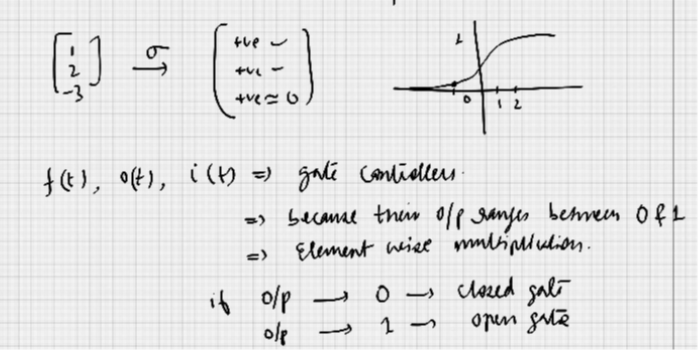 [1 2 -3] σ→ (+ve – +ve – +ve ≃ 0)
1
0 1 2
f(t), o(t), i(t) => gate controllers.
=> because their o/p ranges between 0 & 1
=> Element wise multipliation.
if o/p → 0 → closed gate
o/p → 1 → open gate